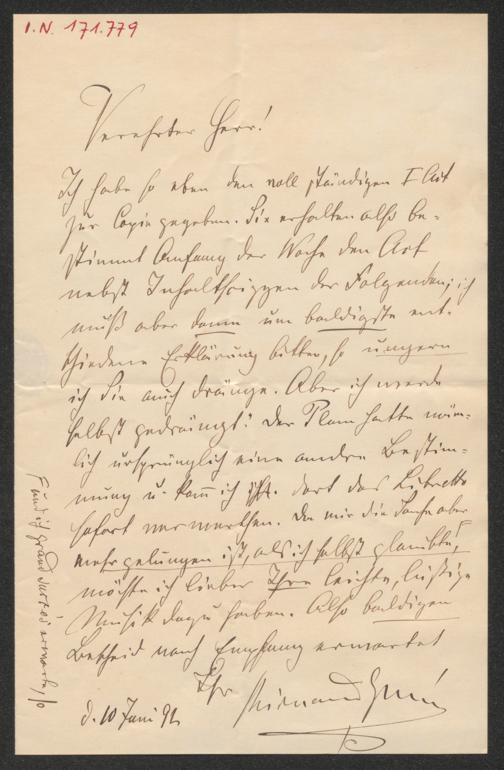 I.N. 171.779
Verehrter Herr!
Ich habe so eben den vollständigen I Act
zur Copie gegeben. Sie erhalten also be-
stimmt Anfang der Woche den Act
nebst Inhaltsskizzen der Folgenden; ich
muß aber dann um baldigste ent-
schiedene Erklärung bitten, so ungern
ich Sie auch dränge. Aber ich werde
selbst gedrängt! Der Plan hatte näm-
lich ursprünglich eine andere Bestim-
mung u. kann ich dort das Libretto
sofort verwerthen. Da mir die Sache aber
mehr gelungen ist, als ich selbst glaubte,
möchte ich lieber Ihre leichte, lustige
Musik dazu haben. Also baldigen
Bescheid nach Empfang erwartet
Ihr
d. 10 Juni 91